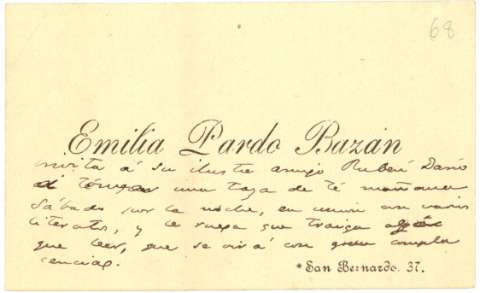 68
Emilia Pardo Bazán
invita á su ilustre amigo Rubén Darío
á tomar una taza de té mañana
Sábado por la noche, en unión con varios
literatos, y le ruega que traiga algo
que leer, que se oirá con gran compla
cencia.
San Bernardo. 37.